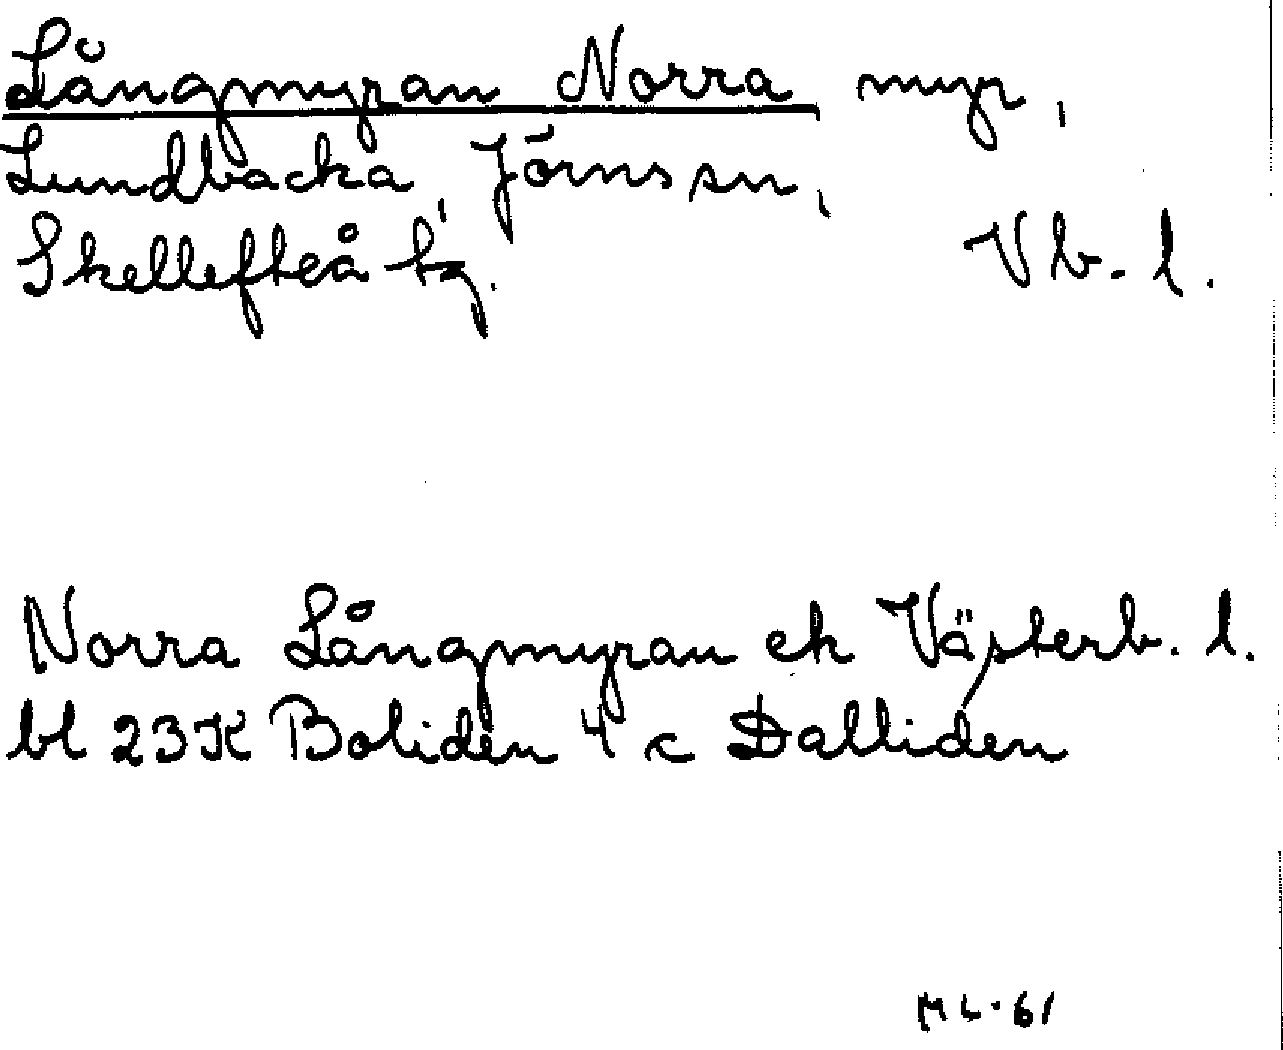 Långmyran Norra myr,
Lundbacka, Jörns sn,
Skellefteå tg. Vb. l.
Norra Långmyran ek Västerb. l.
bl 23K Boliden 4 c Dalliden
ML-61